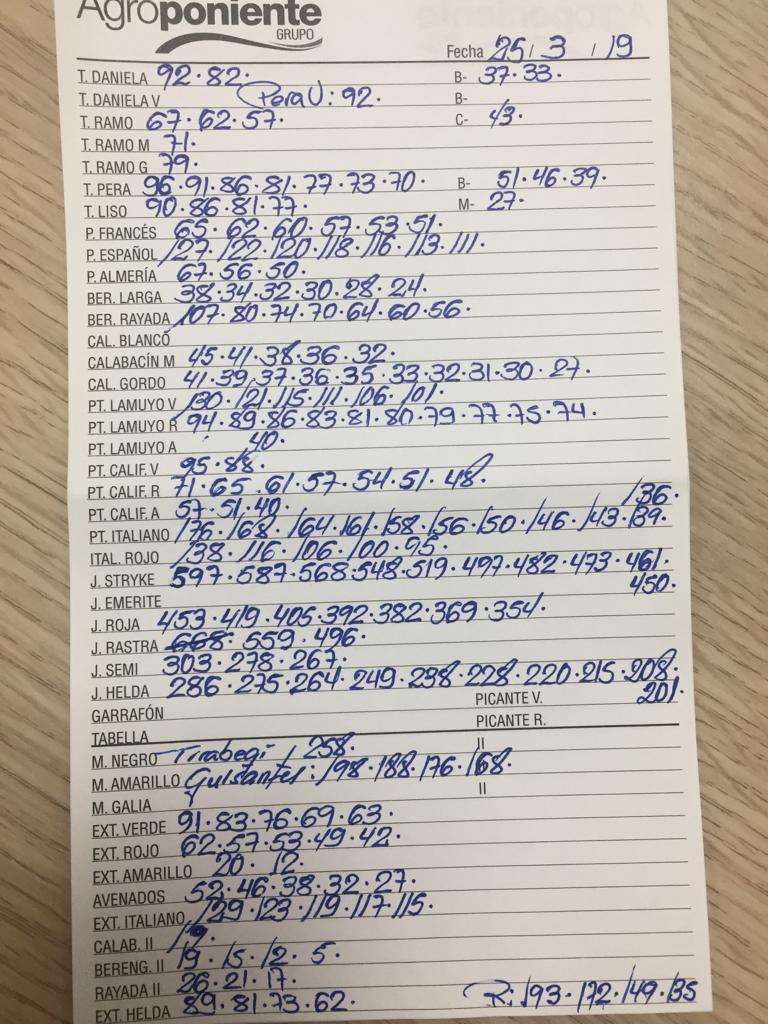 Agroponiente
GRUPO
Fecha 25 / 3 / 19
T. DANELA 92·82. B- 37·33.
T. DANIELA V Pera V: 92. B-
T. RAMO 67·62·57. C- 43.
T. RAMO M 71.
T. RAMO G 79.
T. PERA 96·91·86·81·77·73·70. B- 51·46·39.
T. LISO 90·86·81·77. M- 27.
P. FRANCÉS 65·62·60·57·53·51.
P. ESPAÑOL 127·122·120·118·116·113·111.
P. ALMERÍA 67·56·50.
BER. LARGA 38·34·32·30·28·24.
BER. RAYADA 107·80·74·70·64·60·56.
CAL. BLANCO
CALABACÍN M 45·41·38·36·32.
CAL. GORDO 41·39·37·36·35·33·32·31·30·27.
PT. LAMUYO V 130·121·115·111·106·101.
PT. LAMUYO R 94·89·86·83·81·80·79·77·75·74.
PT. LAMUYO A 40.
PT. CALIF. V 95·88.
PT. CALIF. R 71·65·61·57·54·51·48.
PT. CALIF. A 57·51·40. 136.
PT. ITALIANO 176·168·164·161·158·156·150·146·143·139.
ITAL. ROJO 138·116·106·100·95.
J. STRYKE 597·587·568·548·519·497·482·473·461.
J. EMERITE 450.
J. ROJA 453·419·405·392·382·369·354.
J. RASTRA 668· 559·496.
J. SEMI 303·278·267.
J. HELDA 286·275·264·249·238·228·220·215·208.
GARRAFÓN PICANTE V. 201.
TABELLA PICANTE R.
M. NEGRO Tirabeqi 258. II
M. AMARILLO Guisantes: 198·188·176·168.
M. GALIA II
EXT. VERDE 91·83·76·69·63.
EXT. ROJO 62·57·53·49·42.
EXT. AMARILLO 20· 12.
AVENADOS 52·46·38·32·27.
EXT. ITALIANO 129·123·119·117·115.
CALAB. II
BERENG. II 19·15·12·5.
RAYADA II 26·21·17.
EXT. HELDA 89·81·73·62. R: 193·172·149·135